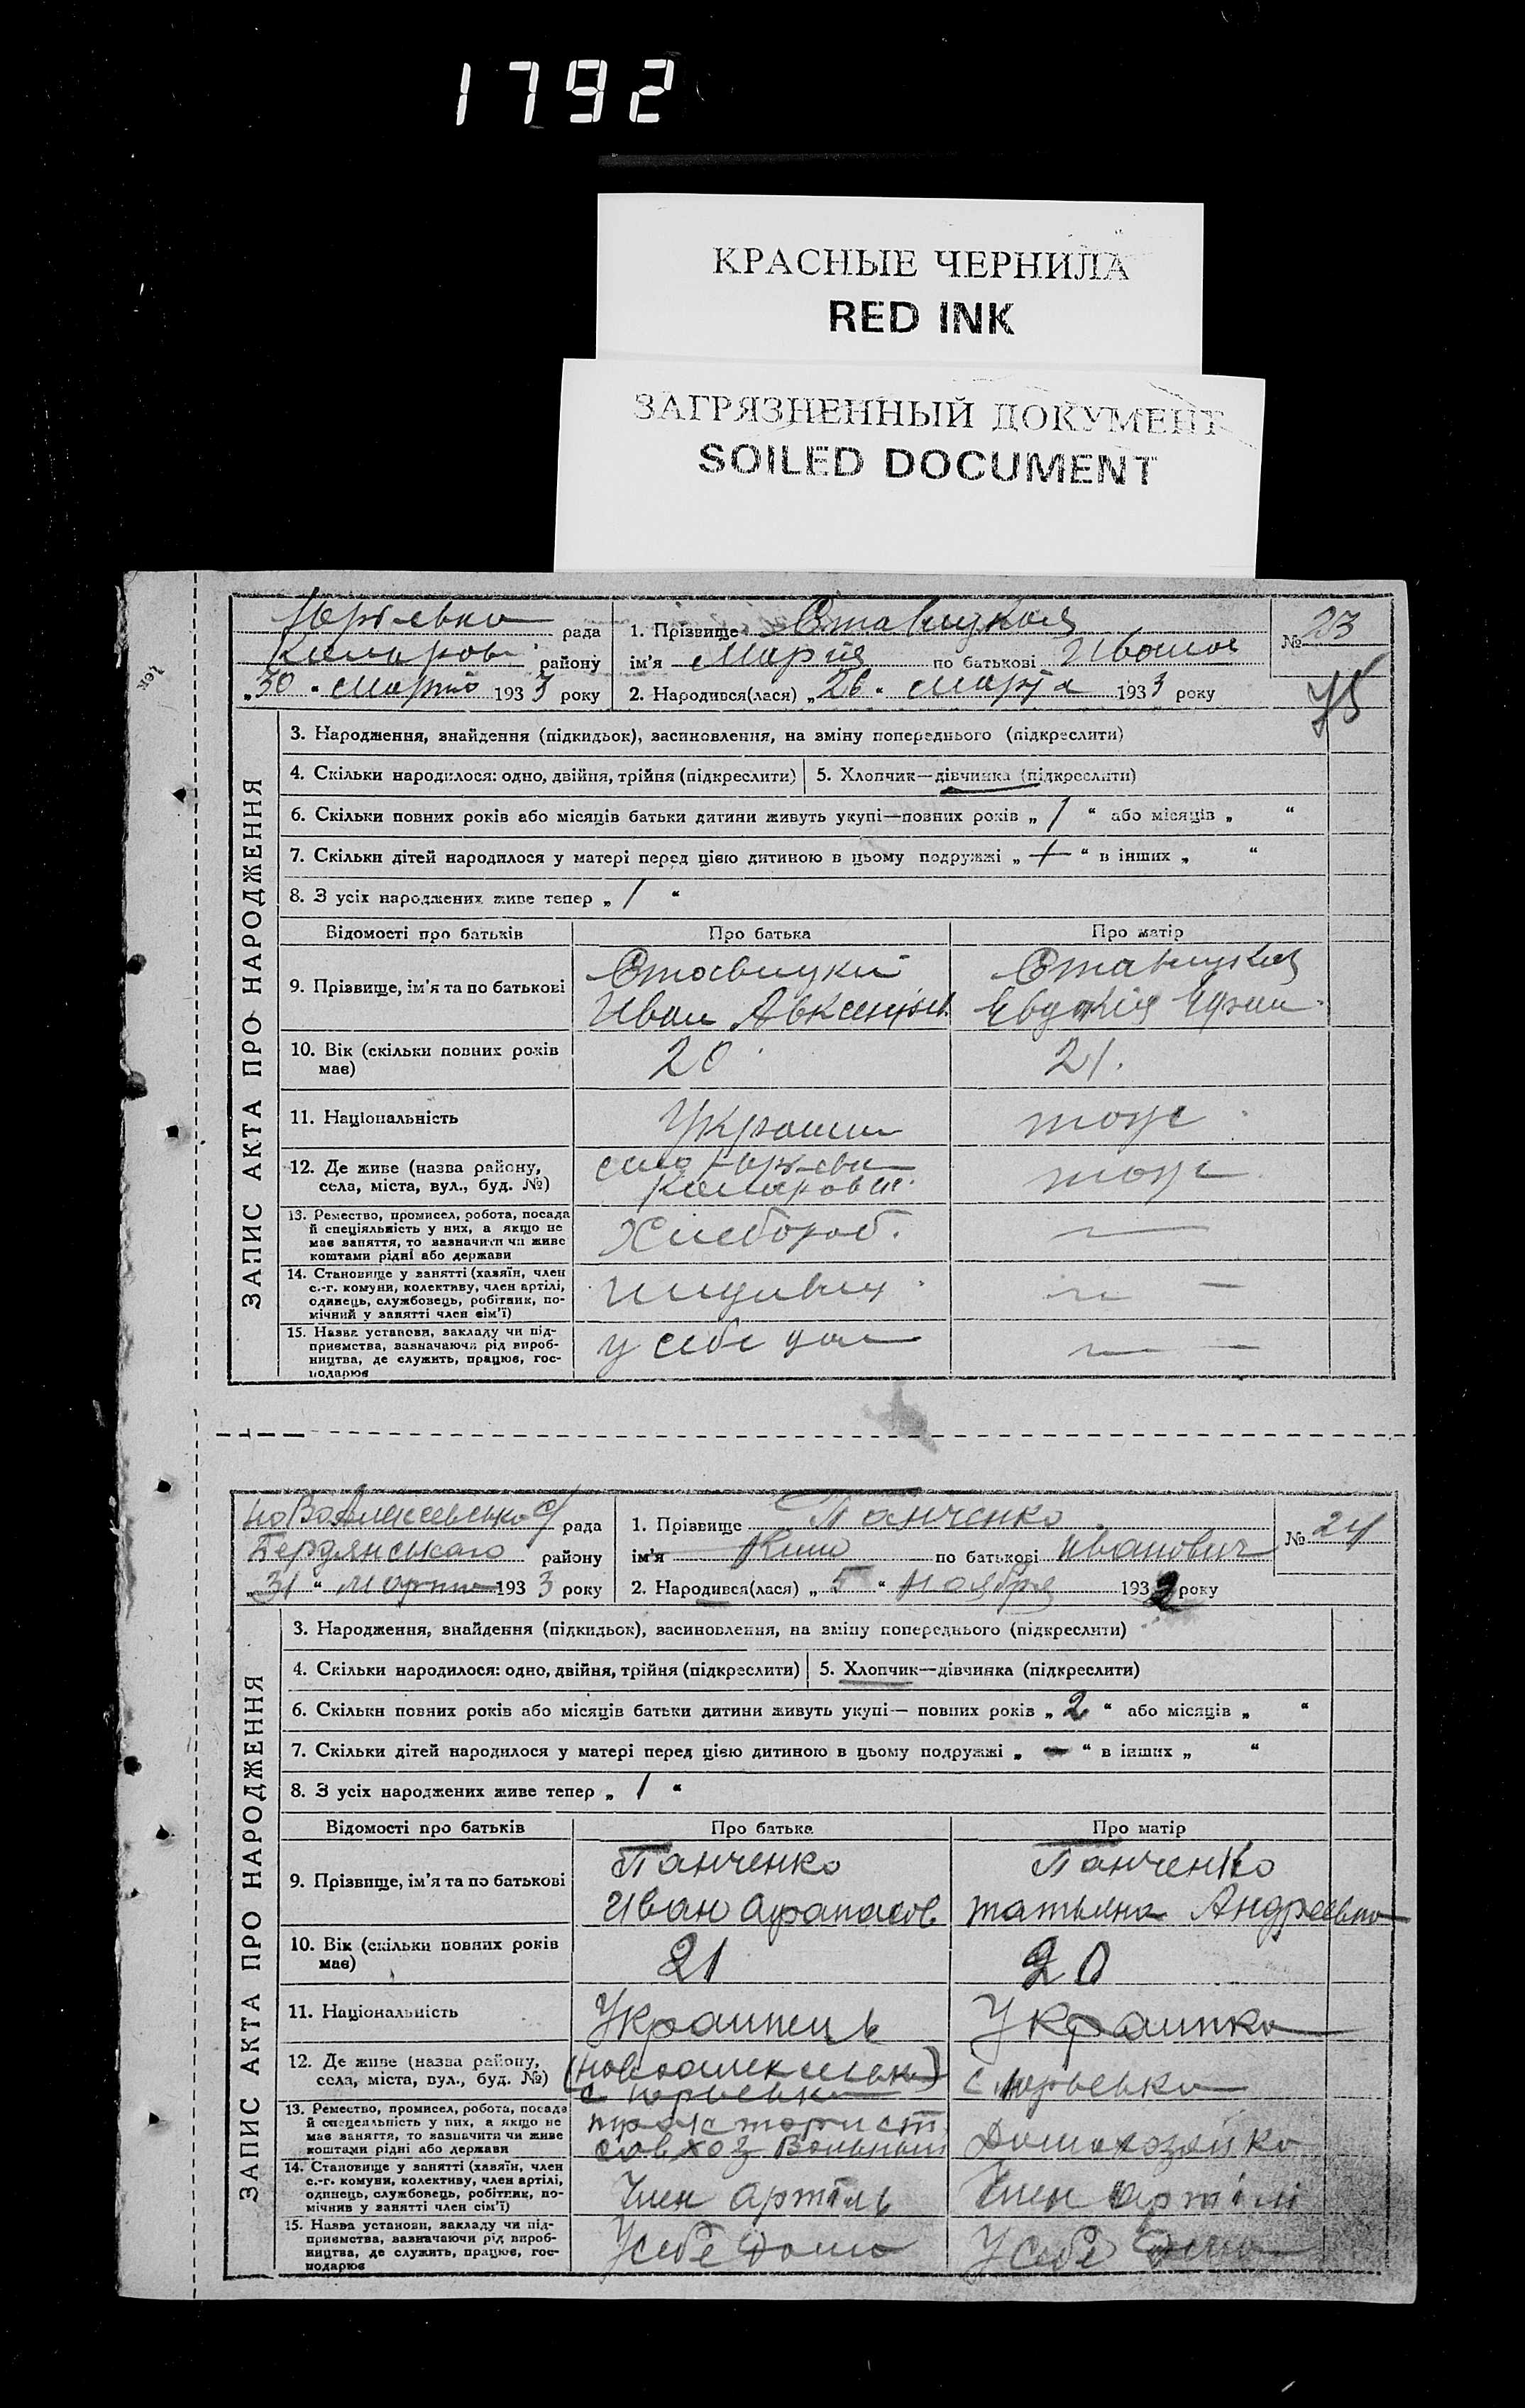 1792
КРАСНЫЕ ЧЕРНИЛА
RED INK
ЗАГРЯЗНЕННЫЙ ДОКУМЕНТ
SOILED DOCUMENT
Юрьевка рада
1. Прізвище Ставицкая
№ 23
району
ім'я Мария по батькові Иванов
„30“ Марта 1933 року
2. Народився(лася) „26“ Марта 1933 року
75
ЗАПИС АКТА ПРО НАРОДЖЕННЯ
3. Народження, знайдення (підкидьок), засиновлення, на зміну попереднього (підкреслити)
4. Скільки народилося: одно, двійня, трійня (підкреслити)
5. Хлопчик—дівчинка (підкреслити)
6. Скільки повних років або місяців батьки дитини живуть укупі—повних років „ 1 “ або місяців „ “
7. Скільки дітей народилося у матері перед цією дитиною в цьому подружжі „ “ в інших „ “
8. З усіх народжених живе тепер „ 1 “
Відомості про батьків
Про батька
Про матір
9. Прізвище, ім'я та по батькові
Ставицкий
Иван Авксентьев
Ставицкая
Евдокія
10. Вік (скільки повних років має)
20
21.
11. Національність
тоже
12. Де живе (назва району, села, міста, вул., буд. №)
село
тоже
13. Ремество, промисел, робота, посада й спеціяльність у них, а якщо не має заняття, то зазначити чи живе коштами рідні або держави
Хлебороб.
—
14. Становище у занятті (хазяїн, член с.-г. комуни, колективу, член артілі, одинець, службовець, робітник, помічний у занятті член сім'ї)
15. Назва установи, закладу чи підприємства, зазначаючи рід виробництва, де служить, працює, господарює
у себе дом
НовоАлексеевсько с/ рада
1. Прізвище Панченко
№ 24
Бердянського району
ім'я по батькові Иванович
„31“ Марта 1933 року
2. Народився(лася) „5“ Ноября 1932 року
ЗАПИС АКТА ПРО НАРОДЖЕННЯ
3. Народження, знайдення (підкидьок), засиновлення, на зміну попереднього (підкреслити)
4. Скільки народилося: одно, двійня, трійня (підкреслити)
5. Хлопчик—дівчинка (підкреслити)
6. Скільки повних років або місяців батьки дитини живуть укупі— повних років „ 2 “ або місяців „ “
7. Скільки дітей народилося у матері перед цією дитиною в цьому подружжі „ — “ в інших „ “
8. З усіх народжених живе тепер „ 1 “
Відомості про батьків
Про батька
Про матір
9. Прізвище, ім'я та по батькові
Панченко
Иван Афанасов
Панченко
татьяна Андреевна
10. Вік (скільки повних років має)
21
20
11. Національність
Украинець
Украинка
12. Де живе (назва району, села, міста, вул., буд. №)
с Юрьевка
с. Юрьевка
13. Ремество, промисел, робота, посада й спецеяльність у них, а якщо не має заняття, то зазначити чи живе коштами рідні або держави
тракторист
совхоз
Домохозяйка
14. Становище у занятті (хазяїн, член с.-г. комуни, колективу, член артілі, одинець, службовець, робітник, помічнив у занятті член сім'ї)
Член артіль
Член артілі
15. Назва установи, закладу чи підприємства, зазначаючи рід виробництва, де служить, працює, господарює
У себе Дома
У себе Дома